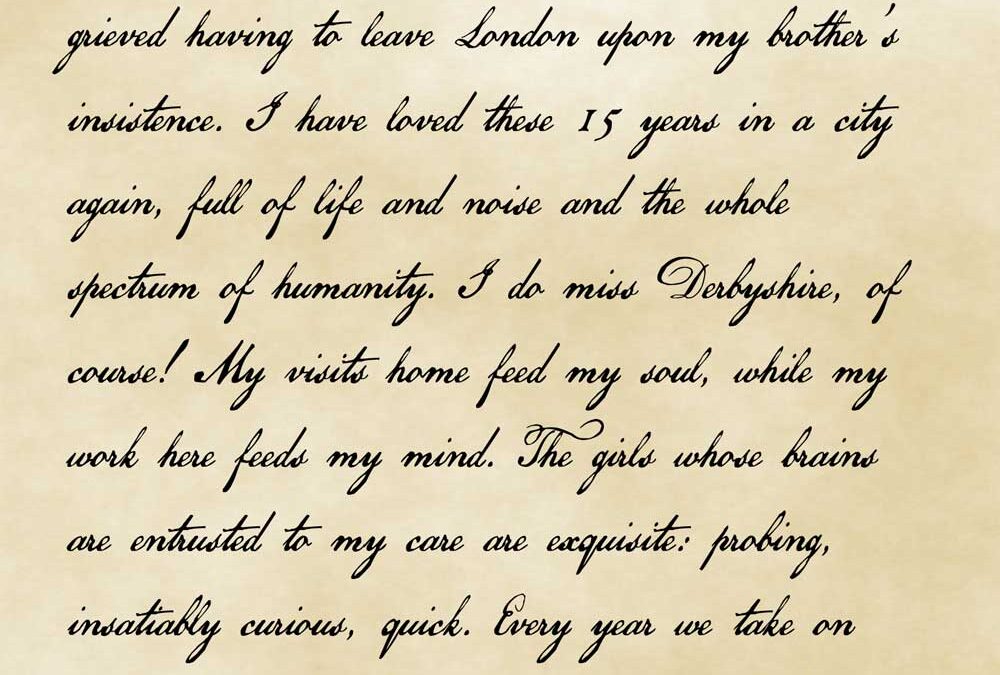 grieved having to leave London upon my brother's
insistence. I have loved these 15 years in a city
again, full of life and noise and the whole
spectrum of humanity. I do miss Derbyshire, of
course! My visits home feed my soul, while my
work here feeds my mind. The girls whose brains
are entrusted to my care are exquisite: probing,
insatiably curious, quick. Every year we take on